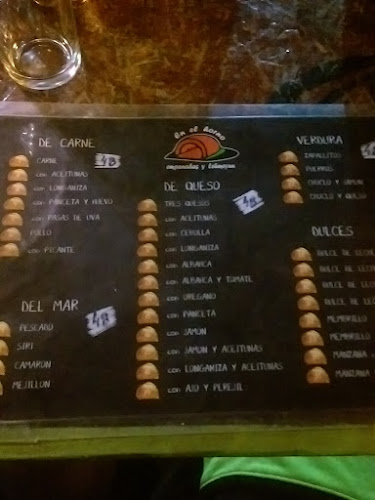 DE CARNE
48
CARNE
con ACEITUNAS
con LONGANIZA
con PANCETA Y HUEVO
con PASAS DE UVA
POLLO
con PICANTE
DEL MAR
48
PESCADO
SIRI
CAMARON
MEJILLON
En el horno
empanadas y
DE QUESO
TRES QUESOS
con ACEITUNAS
con CEBOLLA
con LONGANIZA
con ALBAHCA
con ALBAHCA Y TOMATE
con OREGANO
con PANCETA
con JAMON
con JAMON Y ACEITUNAS
con LONGANIZA Y ACEITUNAS
con AJO Y PEREJIL
VERDURA
ZAPALLITOS
PUERROS
CHOCLO Y JAMON
CHOCLO Y QUESO
DULCES
DULCE DE LECHE
DULCE DE LECHE
DULCE DE LECHE
DULCE DE LE
MEMBRILLO
MEMBRILLO
MANZANA
MANZANA